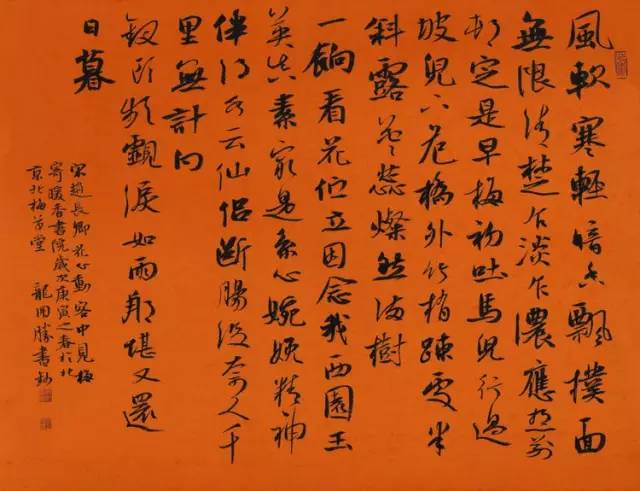 風軟寒輕暗香飄撲面
無限清楚乍淡乍濃應想前
村定是早梅初吐馬兒行過
坡兒下危橋外竹梢疎處半
斜露花蕊燦然滿樹
一餉看花佇立因念我西園玉
英真素最是系心婉娩精神
伴得水云仙侶斷腸没奈人千
里無計向
釵頭頻覷淚如雨那堪又還
日暮
宋趙長卿花心動客中見梅
寄暖香書院歲次庚寅之春於北
京北梅草堂 龍開勝書鈔